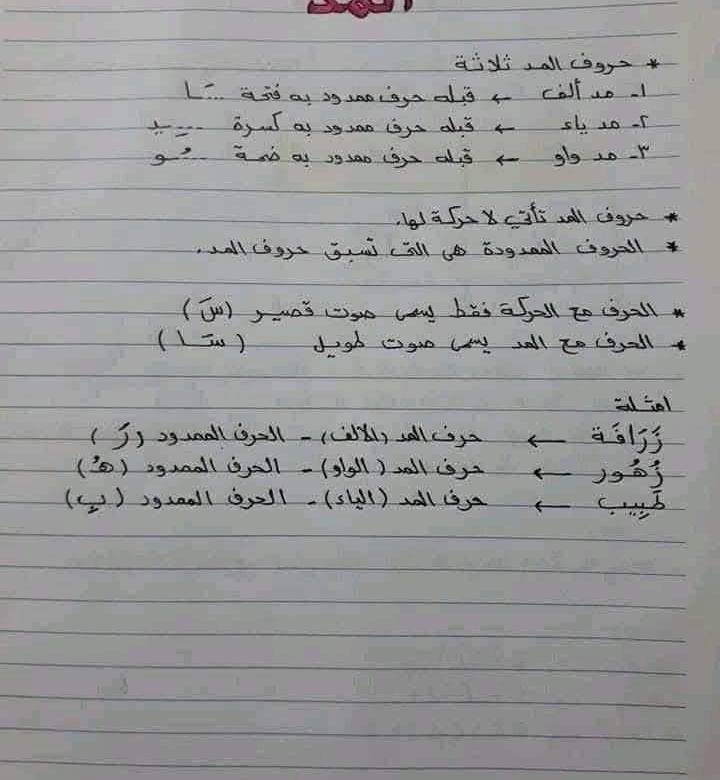 المد
* حروف المد ثلاثة
١- مد ألف ← قبله حرف ممدود به فتحة ...ـَا
٢- مد ياء ← قبله حرف ممدود به كسرة ...ـِيـ
٣- مد واو ← قبله حرف ممدود به ضمة ...ـُو
* حروف المد تأتي لا حركة لها.
* الحروف الممدودة هي التي تسبق حروف المد.
* الحرف مع الحركة فقط يسمى صوت قصير (سَ)
* الحرف مع المد يسمى صوت طويل (سَا)
امثلة
زَرَافَة ← حرف المد (الألف) - الحرف الممدود (رَ)
زُهُور ← حرف المد (الواو) - الحرف الممدود (هُـ)
طَبِيب ← حرف المد (الياء) - الحرف الممدود (بِ)